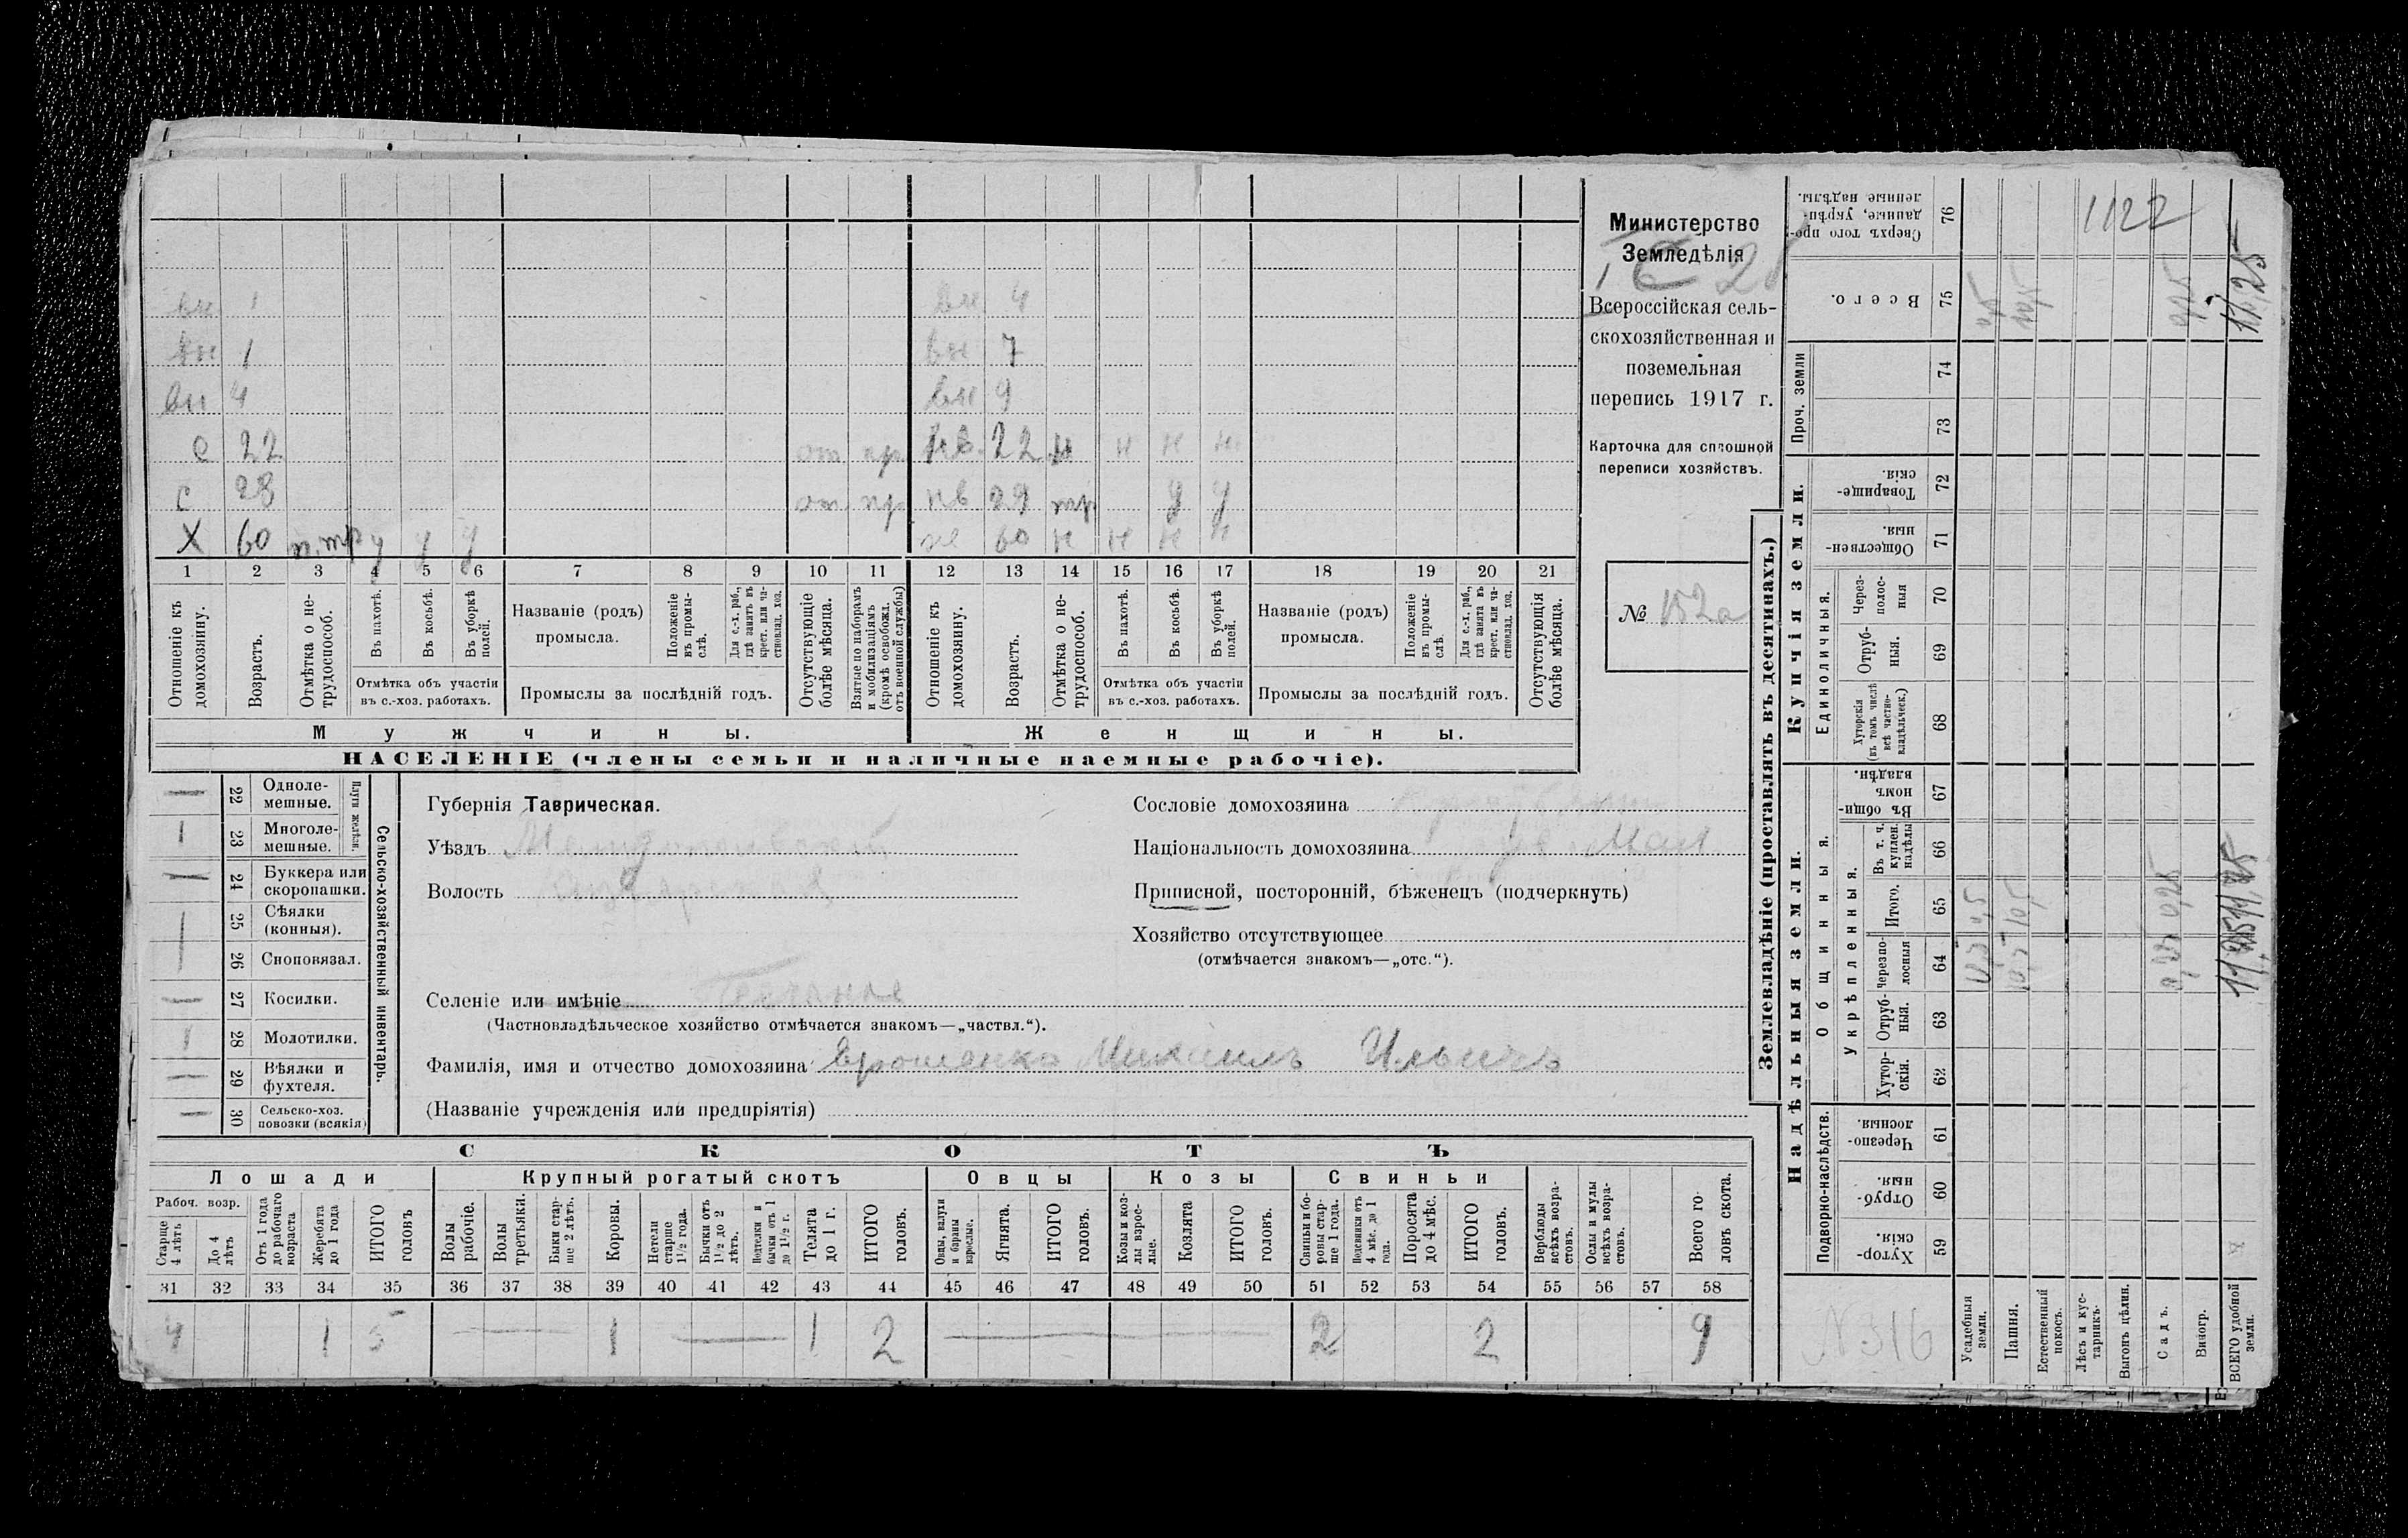 вн 1 вн 4
вн 1 вн 7
вн 4 вн 9
с 22 от пр нв 22 н н н н
с 28 от пр нв 29 тр у у
X 60 п.тр у у у же 60 н н н н
1 2 3 4 5 6 7 8 9 10 11 12 13 14 15 16 17 18 19 20 21
Отношеніе къ домохозяину.
Возрастъ.
Отмѣтка о не-
трудоспособ.
Въ пахотѣ.
Въ косьбѣ.
Въ уборкѣ
полей.
Отмѣтка объ участіи
въ с.-хоз. работахъ.
Названіе (родъ)
промысла.
Положеніе
въ промы-
слѣ.
Для с.-х. раб.,
гдѣ занятъ въ
крест. или ча-
стновлад. хоз.
Промыслы за послѣдній годъ.
Отсутствующіе
болѣе мѣсяца.
Взятые по наборамъ
и мобилизаціямъ
(кромѣ освобожд.
отъ военной службы)
Отношеніе къ
домохозяину.
Возрастъ.
Отмѣтка о не-
трудоспособ.
Въ пахотѣ.
Въ косьбѣ.
Въ уборкѣ
полей.
Отмѣтка объ участіи
въ с.-хоз. работахъ.
Названіе (родъ)
промысла.
Положеніе
въ промы-
слѣ.
Для с.-х. раб.,
гдѣ занята въ
крест. или ча-
стновлад. хоз.
Промыслы за послѣдній годъ.
Отсутствующія
болѣе мѣсяца.
Мужчины. Женщины.
НАСЕЛЕНІЕ (члены семьи и наличные наемные рабочіе).
Министерство
Земледѣлія
Всероссійская сель-
скохозяйственная и
поземельная
перепись 1917 г.
Карточка для сплошной
переписи хозяйствъ.
№ 152а
Сельско-хозяйственный инвентарь.
Плуги желѣзн.
— 22 Одноле-
мешные.
— 23 Многоле-
мешные.
— 24 Буккера или
скоропашки.
— 25 Сѣялки
(конныя).
26 Сноповязал.
— 27 Косилки.
1 28 Молотилки.
— 29 Вѣялки и
фухтеля.
— 30 Сельско-хоз.
повозки (всякія)
Губернія Таврическая.
Уѣздъ
Волость
Селеніе или имѣніе
(Частновладѣльческое хозяйство отмѣчается знакомъ—„частвл.“).
Фамилія, имя и отчество домохозяина Ерошенко Михаилъ Ильичъ
(Названіе учрежденія или предпріятія)
Сословіе домохозяина
Національность домохозяина
Приписной, посторонній, бѣженецъ (подчеркнуть)
Хозяйство отсутствующее
(отмѣчается знакомъ—„отс.“).
СКОТЪ
Лошади Крупный рогатый скотъ Овцы Козы Свиньи
Рабоч. возр.
Старше
4 лѣтъ
До 4
лѣтъ
Отъ 1 года
до рабочаго
возраста
Жеребята
до 1 года
ИТОГО
головъ
Волы
рабочіе.
Волы
третьяки.
Быки стар-
ше 2 лѣтъ.
Коровы.
Нетели
старше
1½ года.
Бычки отъ
1½ до 2
лѣтъ.
бычки отъ 1
до 1½ г.
Телята
до 1 г.
ИТОГО
головъ.
Овцы, валухи
и бараны
взрослые.
Ягнята.
ИТОГО
головъ.
Козы и коз-
лы взрос-
лые.
Козлята
ИТОГО
головъ.
Свиньи и бо-
ровы стар-
ше 1 года.
Подсвинки отъ
4 мѣс. до 1
года.
Поросята
до 4 мѣс.
ИТОГО
головъ.
Верблюды
всѣхъ возра-
стовъ.
Ослы и мулы
всѣхъ возра-
стовъ.
Всего го-
ловъ скота.
31 32 33 34 35 36 37 38 39 40 41 42 43 44 45 46 47 48 49 50 51 52 53 54 55 56 57 58
4 1 5 — 1 — 1 2 — 2 2 9
Землевладѣніе (проставлять въ десятинахъ.)
Купчія земли.
Надѣльныя земли.
Сверхъ того про-
данные, укрѣп-
ленные надѣлы. 76
Всего. 75
Проч. земли
74
73
Товарище-
скія. 72
Обществен-
ныя. 71
Единоличныя.
Через-
полос-
ныя 70
Отруб-
ныя. 69
Хуторскія
(въ томъ числѣ
всѣ частно-
владѣльческ.) 68
Общинныя.
Въ общи-
номъ
владѣн. 67
Укрѣпленныя.
Въ т. ч.
куплен.
надѣлы 66
Итого. 65
Черезпо-
лосныя 64
Отруб-
ныя. 63
Хутор-
скія. 62
Подворно-наслѣдств.
Черезпо-
лосныя. 61
Отруб-
ныя. 60
Хутор-
скія. 59
1122
0,5 10,5 0,25 11,25
0,5 10,5 0,25 11,25
0,5 10,5 0,25 11,25
N 316
Усадебныя
земли.
Пашня.
Естественный
покосъ.
Лѣсъ и кус-
тарникъ.
Выгонъ цѣлин.
Садъ.
Виногр.
ВСЕГО удобной
земли.